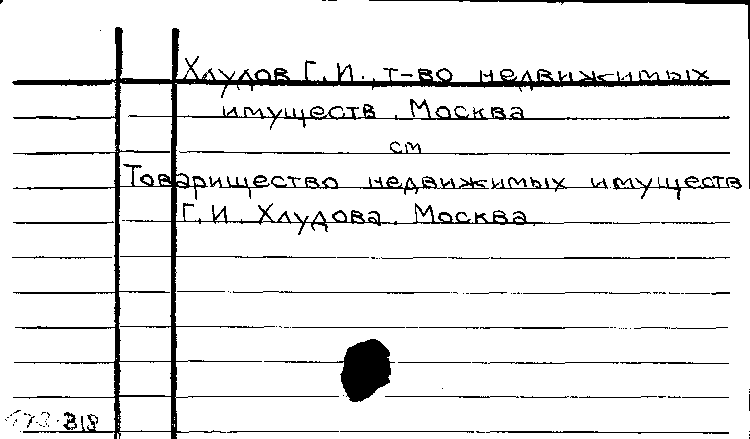 Хлудов Г.И., т-во недвижимых
имуществ. Москва
см
Товарищество недвижимых имуществ
Г.И. Хлудова. Москва.
318